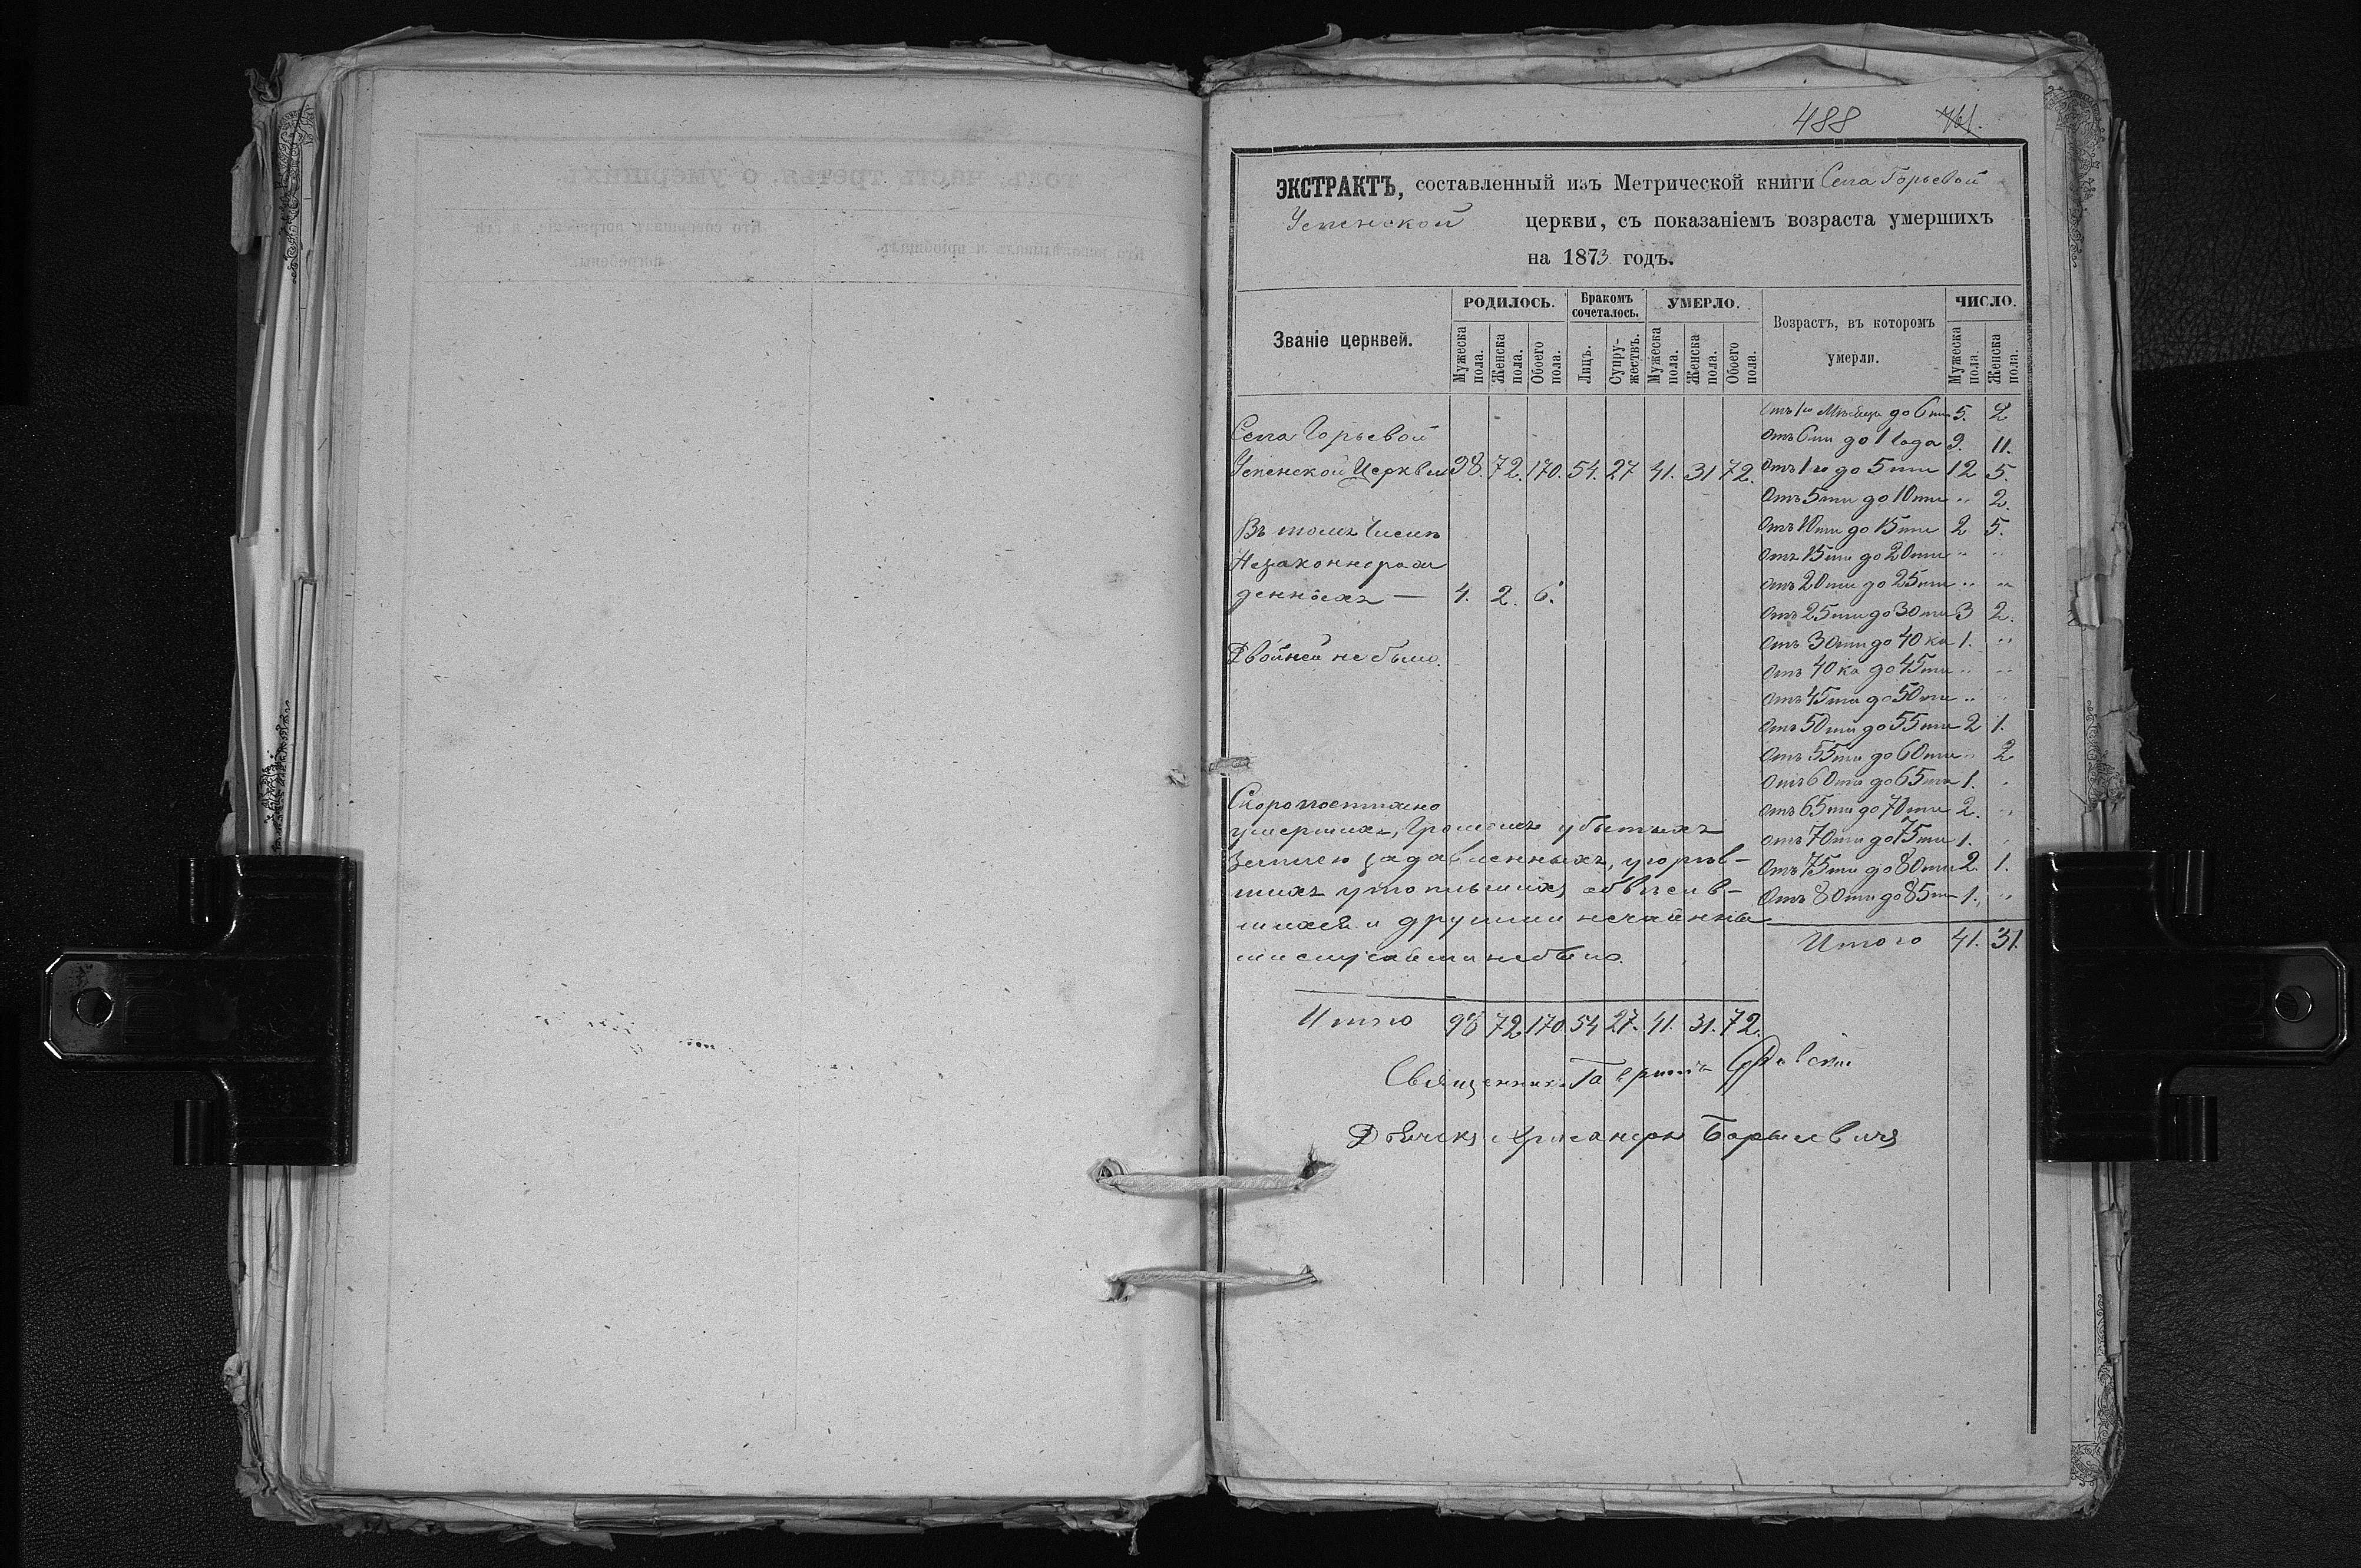 488 761.
ЭКСТРАКТЪ, составленный изъ Метрической книги Села Горьевой
Успенской церкви, съ показаніемъ возраста умершихъ
на 1873 годъ.
Званіе церквей.
РОДИЛОСЬ.
Бракомъ сочеталось.
УМЕРЛО.
Возрастъ, въ которомъ умерли.
ЧИСЛО.
Мужеска пола. Женска пола. Обоего пола. Лицъ. Супружествъ. Мужеска пола. Женска пола. Обоего пола. Мужеска пола. Женска пола.
Села Горьевой
Успенской Церкви 98. 72. 170. 54. 27 41. 31 72.
Въ томъ числѣ
Незаконнорож
денныхъ — 4. 2. 6.
Двойней не было.
Скоропостижно
умершихъ, Громомъ убитыхъ
Землею задавленныхъ, угорѣв-
шихъ утопшихъ, обвѣсив-
шихся и другими нечаянны
ми случаями небыло.
Итого 98 72 170 54 27. 41. 31. 72.
Отъ 1го Мѣсяца до 6ти 5. 2
Отъ 6ти до 1 Года 9. 11.
Отъ 1го до 5ти 12 5.
Отъ 5ти до 10ти " 2.
Отъ 10ти до 15ти 2 5.
Отъ 15ти до 20ти " "
Отъ 20ти до 25ти " "
Отъ 25ти до 30ти 3 2.
Отъ 30ти до 40ка 1. "
Отъ 40ка до 45ти " "
Отъ 45ти до 50ти " "
Отъ 50ти до 55ти 2 1.
Отъ 55ти до 60ти " 2
Отъ 60ти до 65ти 1. "
Отъ 65ти до 70ти 2. "
Отъ 70ти до 75ти 1. "
Отъ 75ти до 80ти 2 1.
Отъ 80ти до 85ти 1. "
Итого 41. 31.
Священникъ Гавріилъ
Дьячекъ